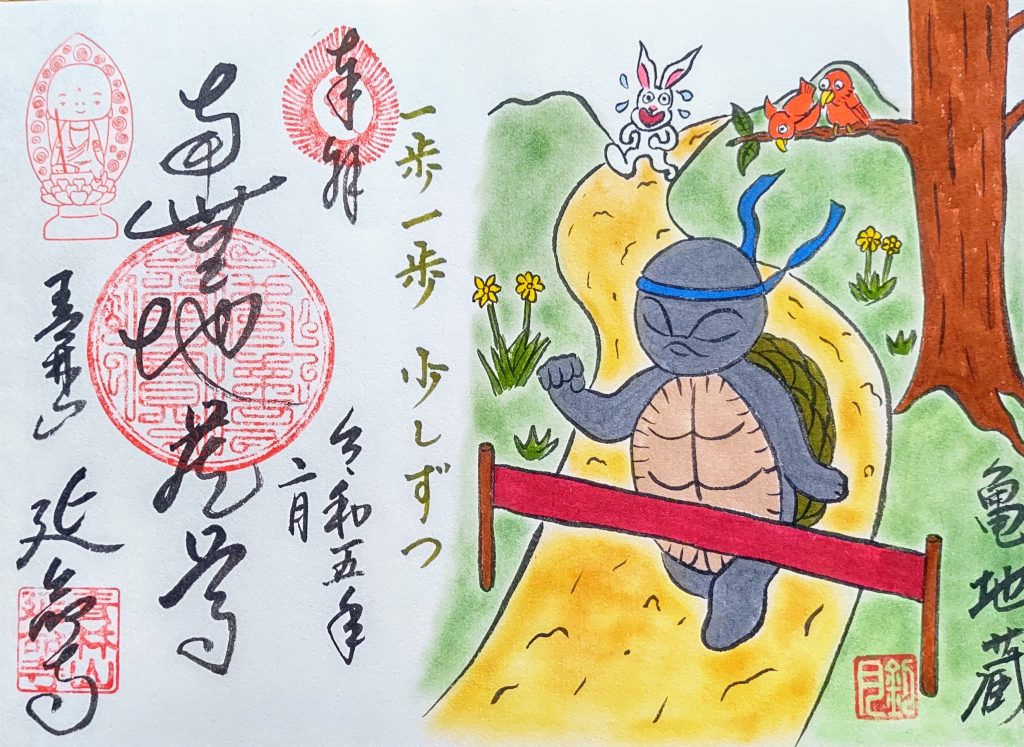 亀地蔵
一歩一歩 少しずつ
奉拝
令和五年
二月
南無地蔵尊
延命寺